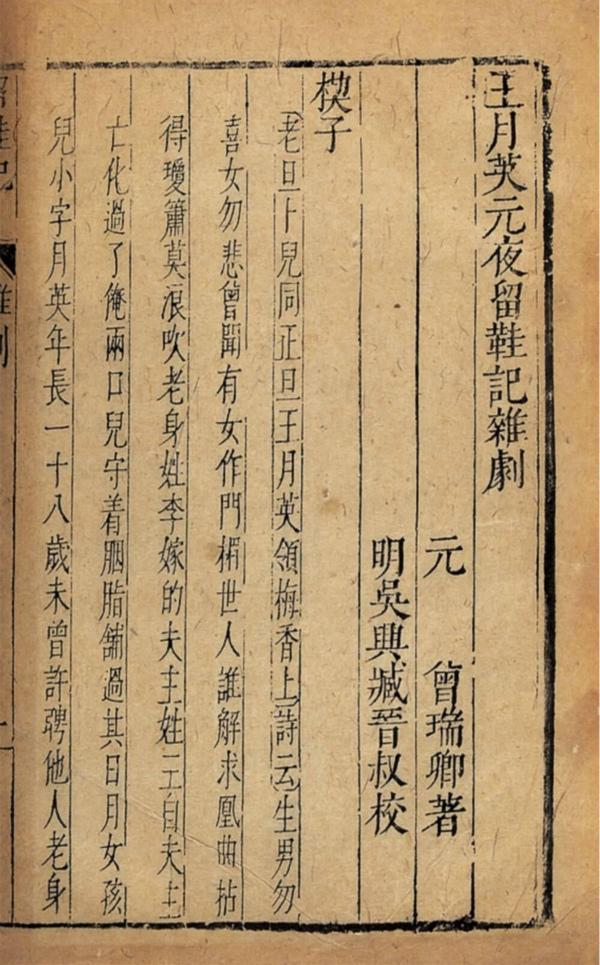 王月英元夜留鞋記雜劇
元 曾瑞卿著
明吳興臧晉叔校
楔子
老旦卜兒同正旦王月英領梅香上詩云生男勿
喜女勿悲曾聞有女作門楣世人誰解求凰曲拈
得瓊簫莫浪吹老身姓李嫁的夫主姓王自夫主
亡化過了俺兩口兒守着胭脂舖過其日月女孩
兒小字月英年長一十八歲未曾許聘他人老身